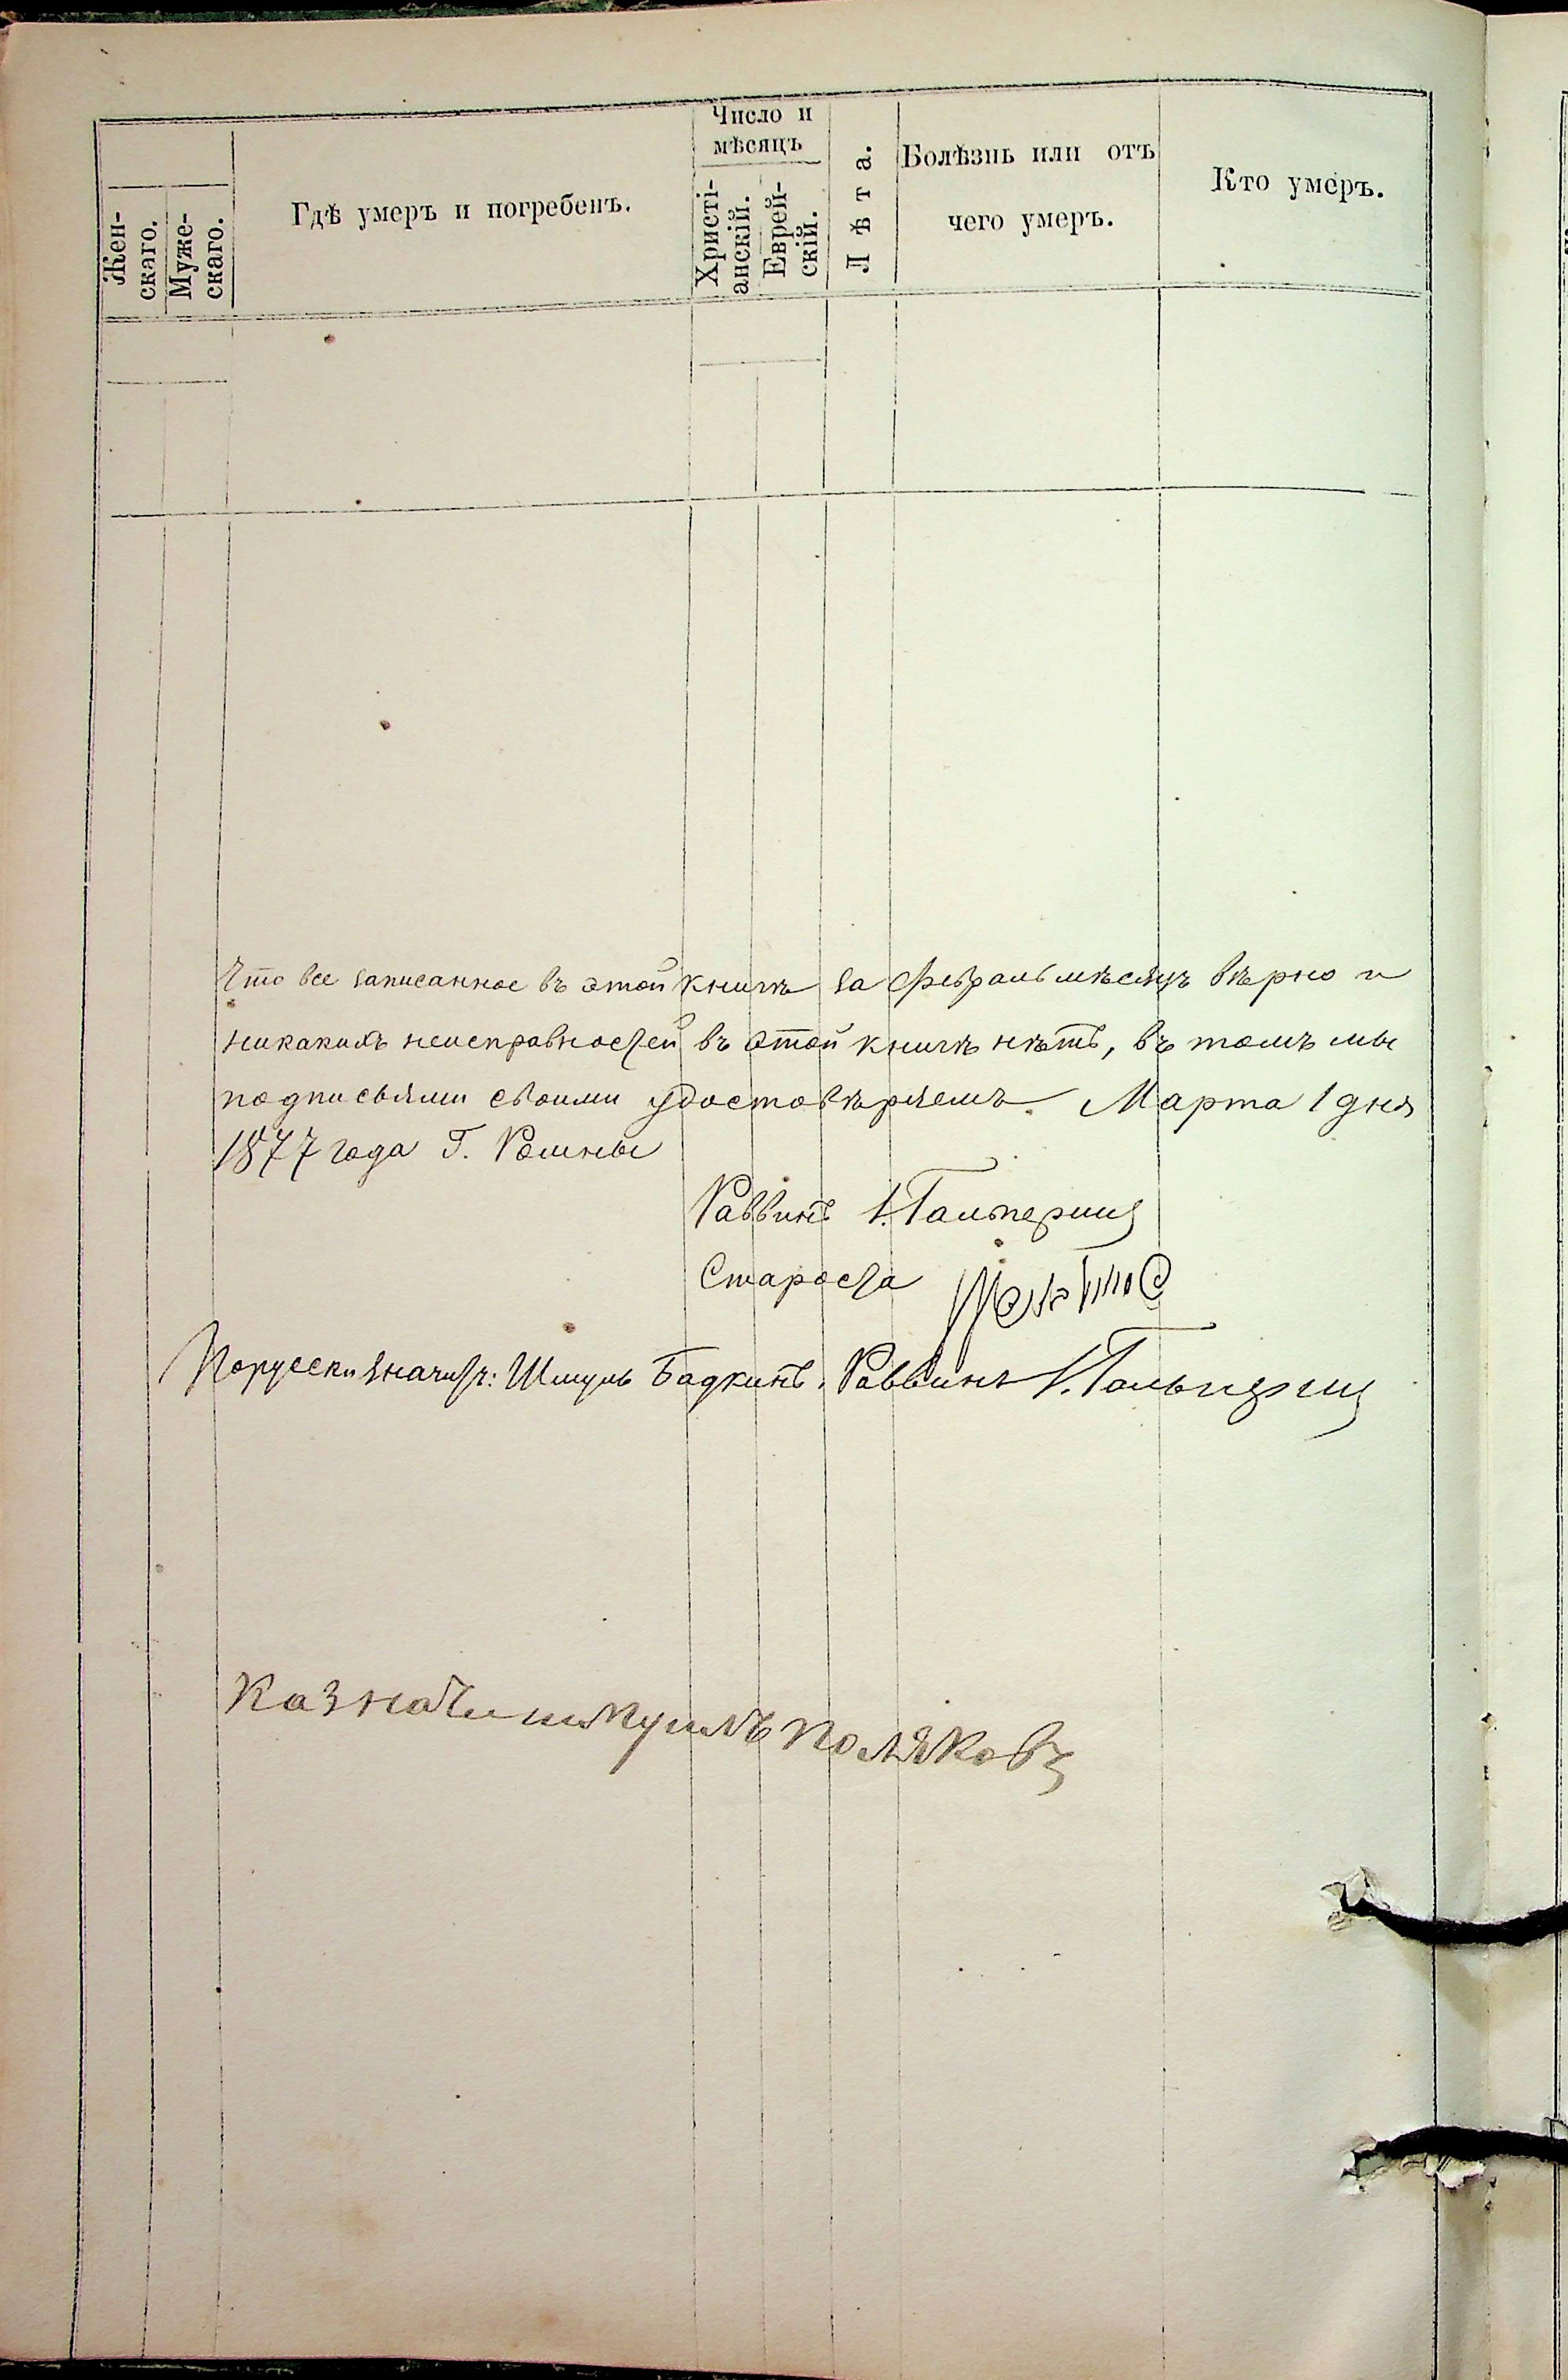 Число и
мѣсяцъ
Жен-
скаго.
Муже-
скаго.
Гдѣ умеръ и погребенъ.
Христі-
анскій.
Еврей-
скій.
Лѣта.
Болѣзнь или отъ
чего умеръ.
Кто умеръ.
Что все записанное въ этой книгѣ за Февраль мѣсяцъ вѣрно и
никакихъ неисправностей въ этой книгѣ нѣтъ, въ томъ мы
подписьями своими удостовѣряемъ. Марта 1 дня
1877 года Г. Ромны
Раввинъ І. Гальперинъ
Староста
Порусски значитъ: Шмуль Бадкинъ. Раввинъ І. Гальперинъ
Казначи Поляковъ